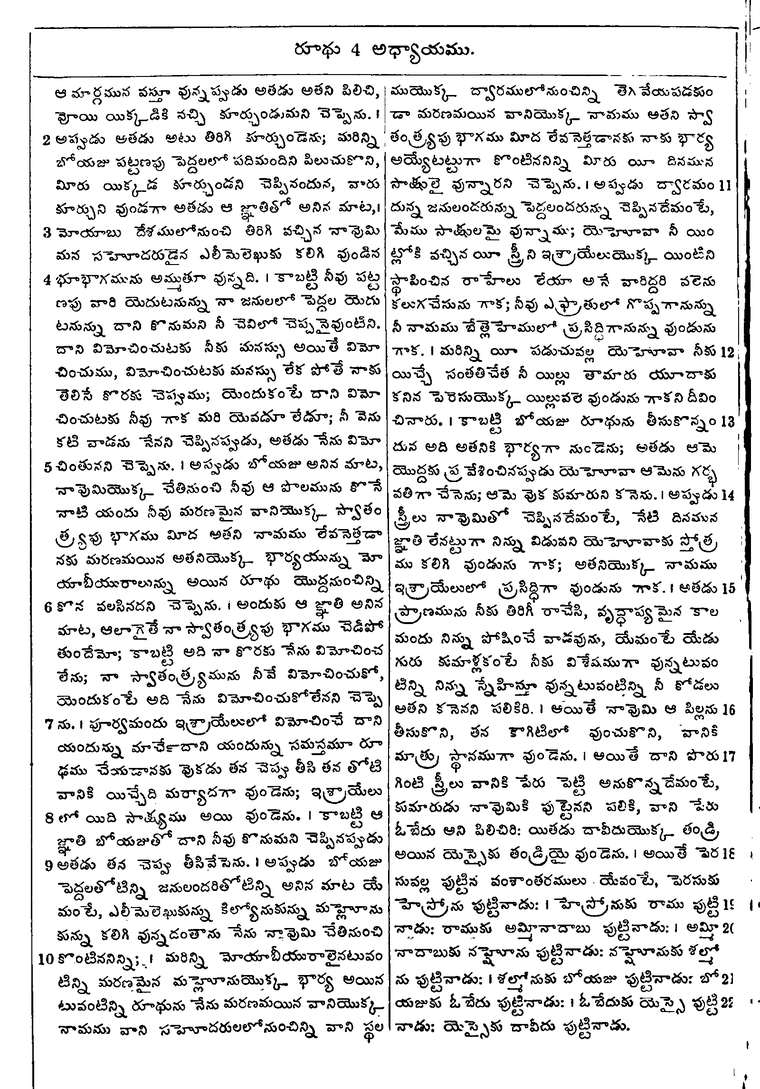 రూథు 4 అధ్యాయము.
ఆ మార్గమున వస్తూ వున్నప్పుడు అతడు అతని పిలిచి,
వోయి యిక్కడికి నచ్చి కూర్చుండుమని చెప్పెను. ।
2 అప్పుడు అతడు అటు తిరిగి కూర్చుండెను; మరిన్ని
బోయజు పట్టణపు పెద్దలలో పదిమందిని పిలుచుకొని,
మీరు యిక్కడ కూర్చుండని చెప్పినందున, వారు
కూర్చుని వుండగా అతడు ఆ జ్ఞాతితో అనిన మాట, ।
3 మోయాబు దేశములోనుంచి తిరిగి వచ్చిన నావొమి
మన సహోదరుడైన ఎలీమెలెఖుకు కలిగి వుండిన
4 భూభాగమును అమ్ముతూ వున్నది. । కాబట్టి నీవు పట్ట
ణపు వారి యెదుటనున్ను నా జనులలో పెద్దల యెదు
టనున్ను దాని కొనుమని నీ చెవిలో చెప్పనైవుంటిని.
దాని విమోచించుటకు నీకు మనస్సు అయితే విమో
చించుము, విమోచించుటకు మనస్సు లేక పోతే నాకు
తెలిసే కొరకు చెప్పుము; యెందుకంటే దాని విమో
చించుటకు నీవు గాక మరి యెవడూ లేడూ; నీ వెను
కటి వాడను నేనని చెప్పినప్పుడు, అతడు నేను విమో
5 చింతునని చెప్పెను. । అప్పుడు బోయజు అనిన మాట,
నావొమియొక్క చేతినుంచి నీవు ఆ పొలమును కొనే
నాటి యందు నీవు మరణమైన వానియొక్క స్వాతం
త్ర్యపు భాగము మీద అతని నామము లేవనెత్తడా
నకు మరణమయిన అతనియొక్క భార్యయున్ను మో
యాబీయురాలున్ను అయిన రూథు యొద్దనుంచిన్ని
6 కొన వలసినదని చెప్పెను. । అందుకు ఆ జ్ఞాతి అనిన
మాట, ఆలాగైతే నా స్వాతంత్ర్యపు భాగము చెడిపో
తుందేమో; కాబట్టి అది నా కొరకు నేను విమోచించ
లేను; నా స్వాతంత్ర్యమును నీవే విమోచించుకో,
యెందుకంటే అది నేను విమోచించుకోలేనని చెప్పె
7 ను. । పూర్వమందు ఇశ్రాయేలులో విమోచించే దాని
యందున్ను మార్చేదాని యందున్ను సమస్తమూ రూ
ఢము చేయడానకు వొకడు తన చెప్పు తీసి తన తోటి
వానికి యిచ్చేది మర్యాదగా వుండెను; ఇశ్రాయేలు
8 లో యిది సాక్ష్యము అయి వుండెను. । కాబట్టి ఆ
జ్ఞాతి బోయజుతో దాని నీవు కొనుమని చెప్పినప్పుడు
9 అతడు తన చెప్పు తీసివేసెను. । అప్పుడు బోయజు
పెద్దలతోటిన్ని జనులందరితోటిన్ని అనిన మాట యే
మంటే, ఎలీమెలెఖుకున్ను కిల్యోనుకున్ను మహ్లోను
కున్ను కలిగి వున్నదంతాను నేను నావొమి చేతినుంచి
10 కొంటిననిన్ని; । మరిన్ని మోయాబీయురాలైనటువం
టిన్ని మరణమైన మహ్లోనుయొక్క భార్య అయిన
టువంటిన్ని రూథును నేను మరణమయిన వానియొక్క
నామము వాని సహోదరులలోనుంచిన్ని వాని స్థల
ముయొక్క ద్వారములోనుంచిన్ని తెగ వేయపడకుం
డా మరణమయిన వానియొక్క నామము అతని స్వా
తంత్ర్యపు భాగము మీద లేవనెత్తడానకు నాకు భార్య
అయ్యేటట్టుగా కొంటిననిన్ని మీరు యీ దినమున
సాక్షులై వున్నారని చెప్పెను. । అప్పుడు ద్వారమం 11
దున్న జనులందరున్ను పెద్దలందరున్ను చెప్పినదేమంటే,
మేము సాక్షులమై వున్నాము; యెహోవా నీ యిం
ట్లోకి వచ్చిన యీ స్త్రీని ఇశ్రాయేలుయొక్క యింటిని
స్థాపించిన రాహేలు లేయా అనే వారిద్దరి వలెను
కలుగచేసును గాక; నీవు ఎఫ్రాతులో గొప్పగానున్ను
నీ నామము బేత్లెహేములో ప్రసిద్ధిగానున్ను వుండును
గాక. । మరిన్ని యీ పడుచువల్ల యెహోవా నీకు 12
యిచ్చే సంతతిచేత నీ యిల్లు తామారు యూదాకు
కనిన పెరెసుయొక్క యిల్లువలె వుండును గాకని దీవిం
చినారు. । కాబట్టి బోయజు రూథును తీసుకొన్నం 13
దున అది అతనికి భార్యగా నుండెను; అతడు ఆమె
యొద్దకు ప్రవేశించినప్పుడు యెహోవా ఆమెను గర్భ
వతిగా చేసెను; ఆమె వొక కుమారుని కనెను. । అప్పుడు 14
స్త్రీలు నావొమితో చెప్పినదేమంటే, నేటి దినమున
జ్ఞాతి లేనట్టుగా నిన్ను విడువని యెహోవాకు స్తోత్ర
ము కలిగి వుండును గాక; అతనియొక్క నామము
ఇశ్రాయేలులో ప్రసిద్ధిగా వుండును గాక. । అతడు 15
ప్రాణమును నీకు తిరిగీ రాచేసి, వృద్ధాప్యమైన కాల
మందు నిన్ను పోషించే వాడవును, యేమంటే యేడు
గురు కుమాళ్లకంటే నీకు విశేషముగా వున్నటువం
టిన్ని నిన్ను స్నేహిస్తూ వున్నటువంటిన్ని నీ కోడలు
అతని కనెనని పలికిరి. । అయితే నావొమి ఆ పిల్లను 16
తీసుకొని, తన కాగిటిలో వుంచుకొని, వానికి
మాత్రు స్థానముగా వుండెను. । అయితే దాని పొరు 17
గింటి స్త్రీలు వానికి పేరు పెట్టి అనుకొన్నదేమంటే,
కుమారుడు నావొమికి పుట్టెనని పలికి, వాని పేరు
ఓబేదు అని పిలిచిరి: యితడు దావీదుయొక్క తండ్రి
అయిన యెస్సైకు తండ్రియై వుండెను. । అయితే పెరె 18
సువల్ల పుట్టిన వంశాంతరములు యేవంటే, పెరెసుకు
హేస్రోను పుట్టినాడు: । హేస్రోనుకు రాము పుట్టి 19
నాడు: రాముకు అమ్మినాదాబు పుట్టినాడు: । అమ్మి 20
నాదాబుకు నహ్షోను పుట్టినాడు: నహ్షోనుకు శల్మో
ను పుట్టినాడు: । శల్మోనుకు బోయజు పుట్టినాడు: బో 21
యజుకు ఓబేదు పుట్టినాడు: । ఓబేదుకు యెస్సై పుట్టి 22
నాడు: యెస్సైకు దావీదు పుట్టినాడు.